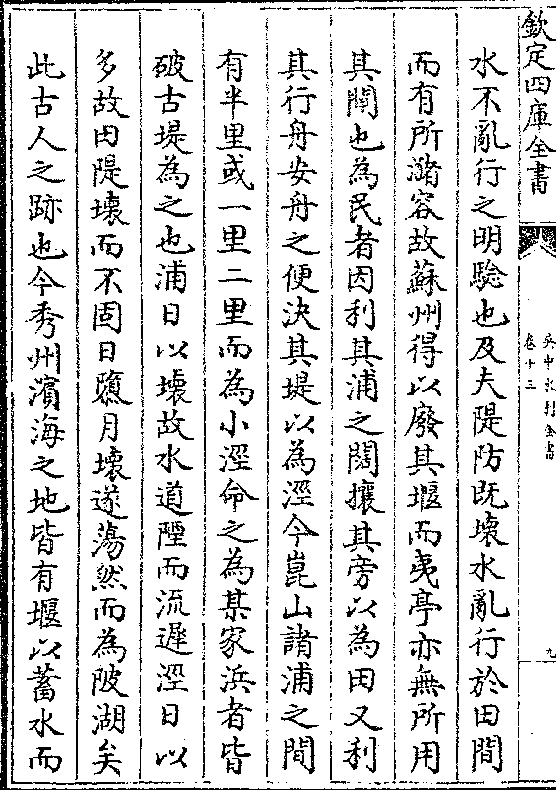 欽定四庫全書
吳中水利全書
卷十三
九
水不亂行之明驗也及夫隄防既壞水亂行於田間
而有所瀦容故蘇州得以廢其堰而夷亭亦無所用
其閘也為民者因利其浦之闊攘其旁以為田又利
其行舟安舟之便決其堤以為涇今崑山諸浦之間
有半里或一里二里而為小涇命之為某家浜者皆
破古堤為之也浦日以壞故水道陻而流遲涇日以
多故田隄壞而不固日隳月壞遂蕩然而為陂湖矣
此古人之跡也今秀州濱海之地皆有堰以蓄水而